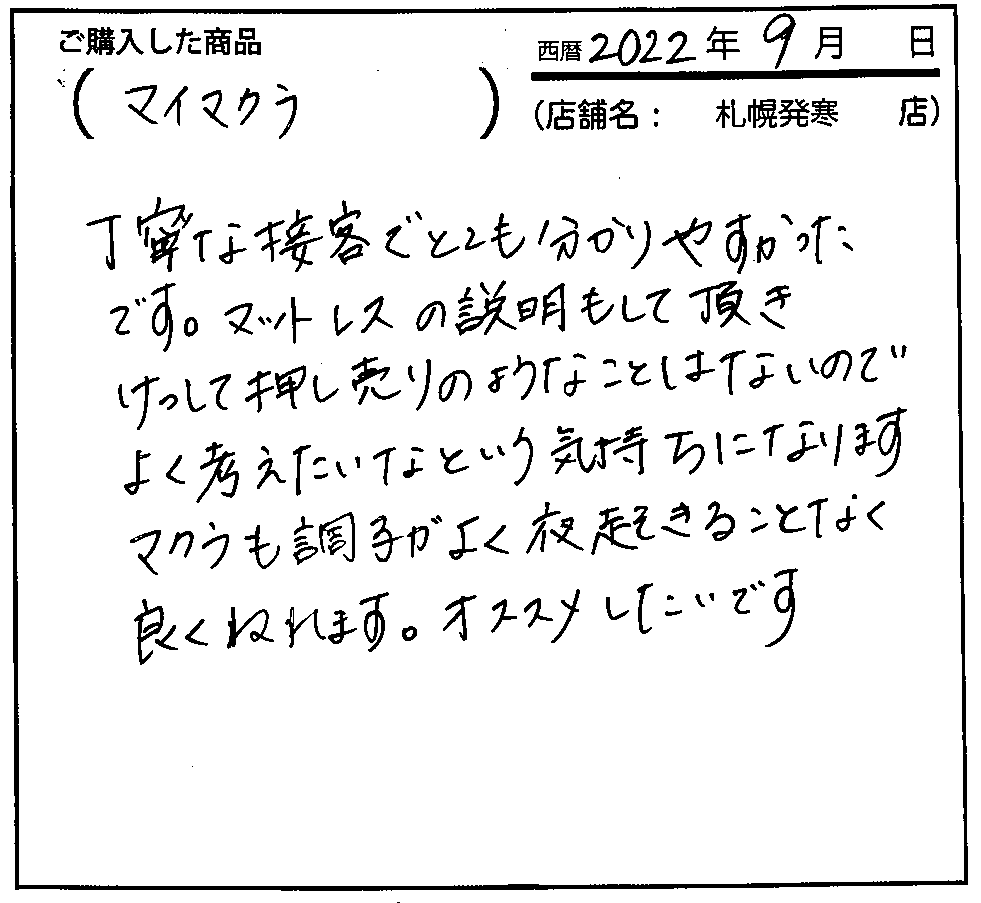 ご購入した商品
西暦2022年9月 日
(マイマクラ)
(店舗名: 札幌発寒 店)
丁寧な接客でとても分かりやすかった
です。マットレスの説明もして頂き
けっして押し売りのようなことはないので
よく考えたいなという気持ちになります
マクラも調子がよく夜起きることなく
良くねれます。オススメしたいです